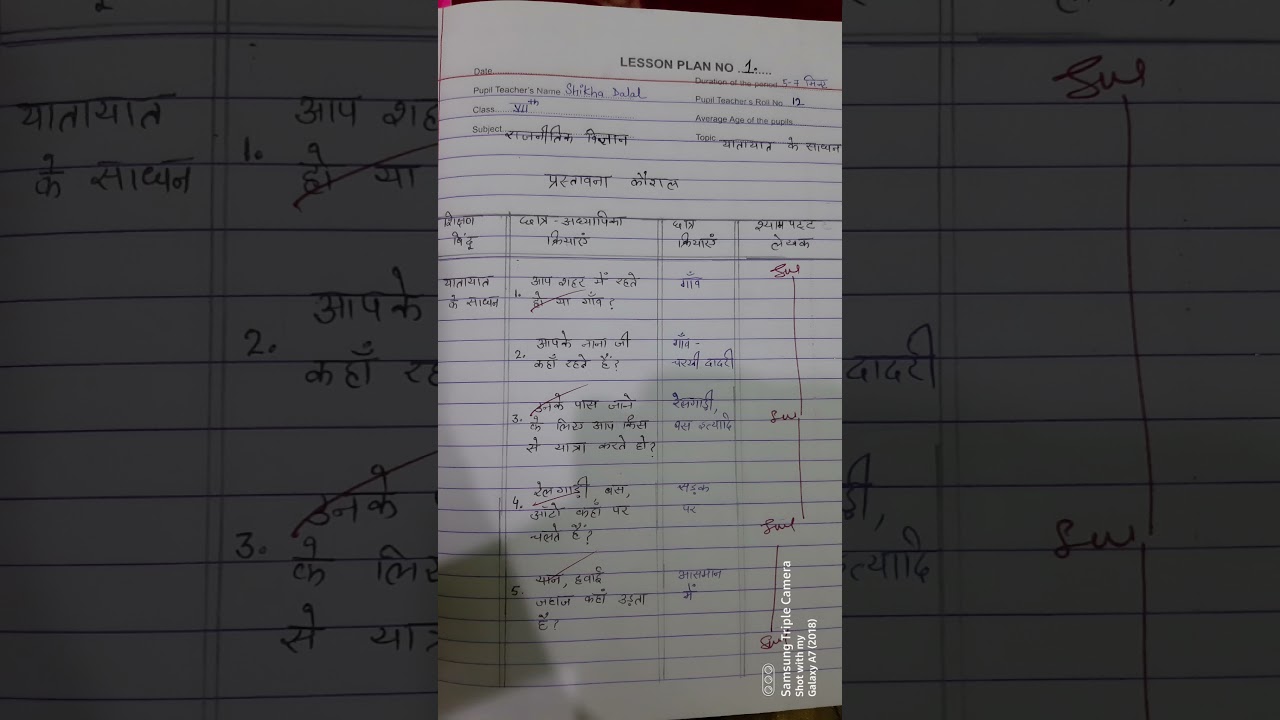 LESSON PLAN NO ..1......
Date..............
Duration of the period 5-7 मिनट
Pupil Teacher's Name Shikha Dalal
Pupil Teacher's Roll No. 12
Class......
Average Age of the pupils....
Subject राजनीतिक विज्ञान
Topic यातायात के साधन
प्रस्तावना कौशल
शिक्षण बिंदू
छात्र-अध्यापिका क्रियाएं
छात्र क्रियाएं
श्यामपट्ट लेखक
यातायात के साधन
1. आप शहर में रहते
हो या गाँव?
गाँव
2. आपके नाना जी
कहाँ रहते हैं?
गाँव -
चरखी दादरी
3. उनके पास जाने
के लिए आप किस
से यात्रा करते हो?
रेलगाड़ी,
बस इत्यादि
4. रेलगाड़ी बस,
ऑटो कहाँ पर
चलते हैं?
सड़क
पर
5. यान, हवाई
जहाज कहां उड़ता
है?
आसमान
में
Samsung Triple Camera
Shot with my
Galaxy A7 (2018)
यातायात
के साधन
1. आप शह
हो या
2. आपके
कहाँ रह
दादरी
3. उनके
के लिए
से यात्र
ड़ी,
त्यादि